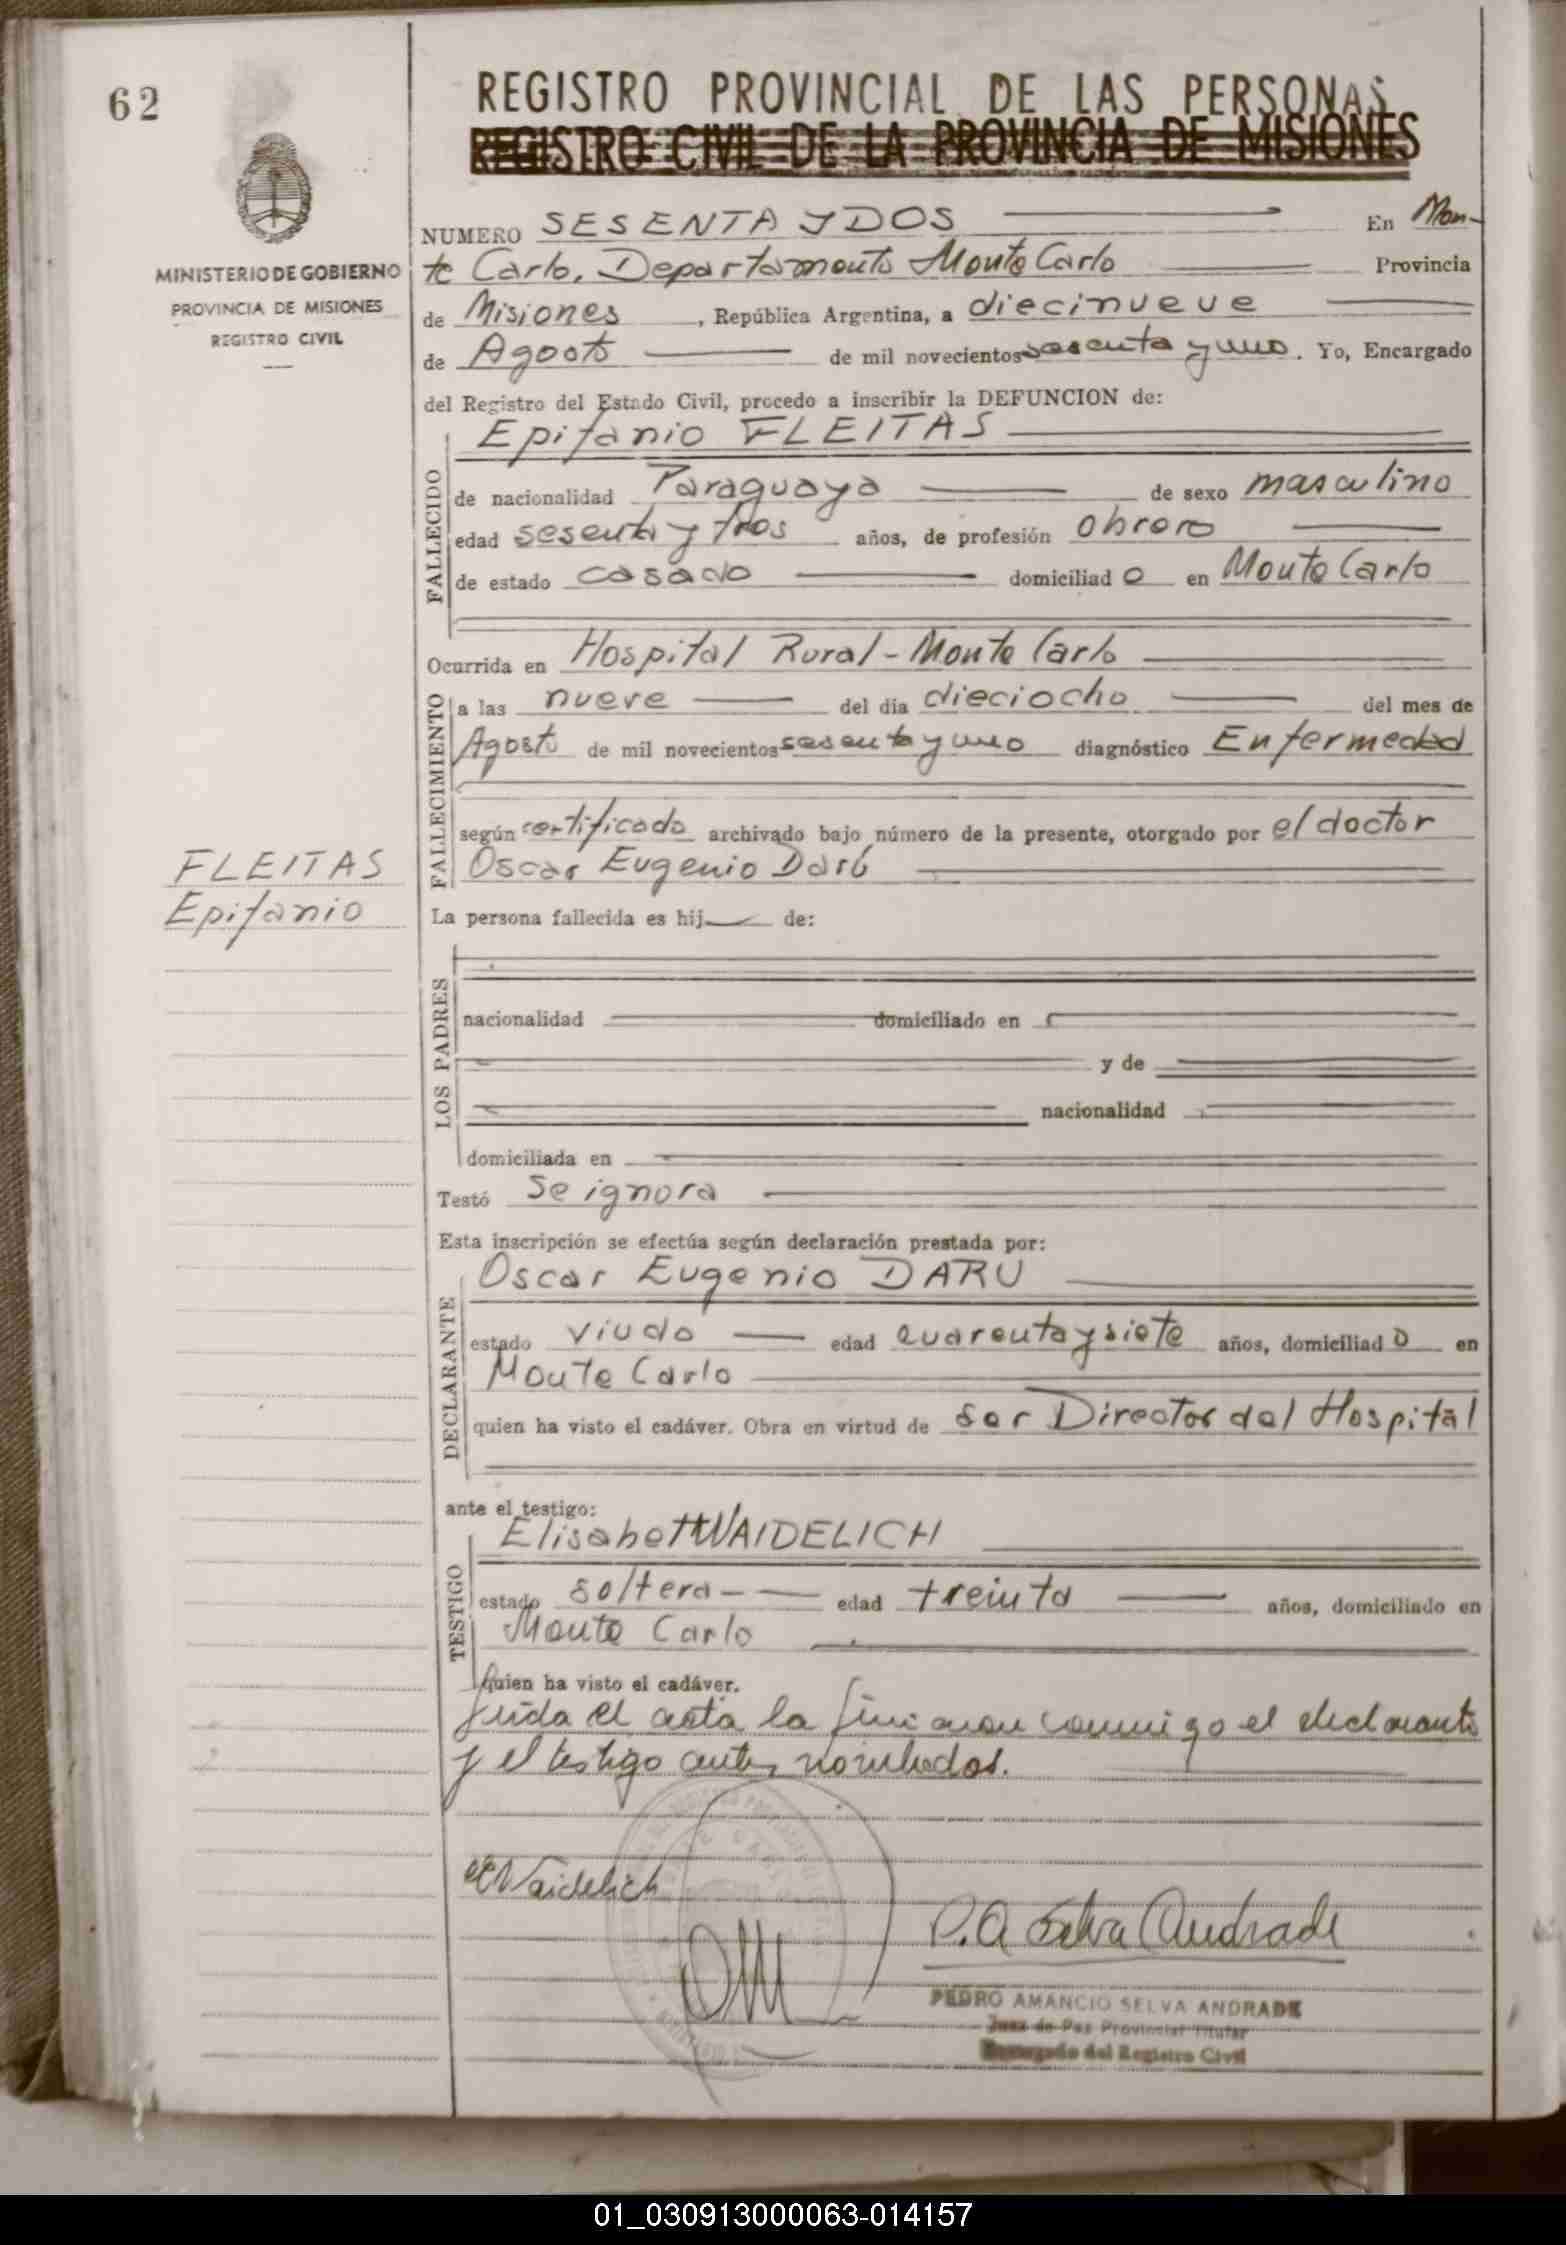 62
REGISTRO PROVINCIAL DE LAS PERSONAS
REGISTRO CIVIL DE LA PROVINCIA DE MISIONES
MINISTERIO DE GOBIERNO
PROVINCIA DE MISIONES
REGISTRO CIVIL
NUMERO SESENTA Y DOS En Mon-
te Carlo, Departamento Monte Carlo Provincia
de Misiones, República Argentina, a diecinueve
de Agosto de mil novecientos sesenta y uno. Yo, Encargado
del Registro del Estado Civil, procedo a inscribir la DEFUNCION de:
FALLECIDO
Epifanio FLEITAS
de nacionalidad Paraguaya de sexo masculino
edad sesenta y tres años, de profesión obrero
de estado casado domiciliado en Monte Carlo
Ocurrida en Hospital Rural - Monte Carlo
FALLECIMIENTO
a las nueve del día dieciocho del mes de
Agosto de mil novecientos sesenta y uno diagnóstico Enfermedad
según certificado archivado bajo número de la presente, otorgado por el doctor
Oscar Eugenio Darú
FLEITAS
Epifanio
La persona fallecida es hij de:
LOS PADRES
nacionalidad domiciliado en
y de
nacionalidad
domiciliada en
Testó se ignora
Esta inscripción se efectúa según declaración prestada por:
DECLARANTE
Oscar Eugenio DARU
estado viudo edad cuarenta y siete años, domiciliado en
Monte Carlo
quien ha visto el cadáver. Obra en virtud de ser Director del Hospital
ante el testigo:
TESTIGO
Elisabeth WAIDELICH
estado soltera - edad treinta años, domiciliado en
Monte Carlo
quien ha visto el cadáver.
Leída el acta la firmaron conmigo el declarante
y el testigo antes nombrados.
E Waidelich
P. A Selva Andrade
PEDRO AMANCIO SELVA ANDRADE
Juez de Paz Provincial Titular
Encargado del Registro Civil
01_030913000063-014157